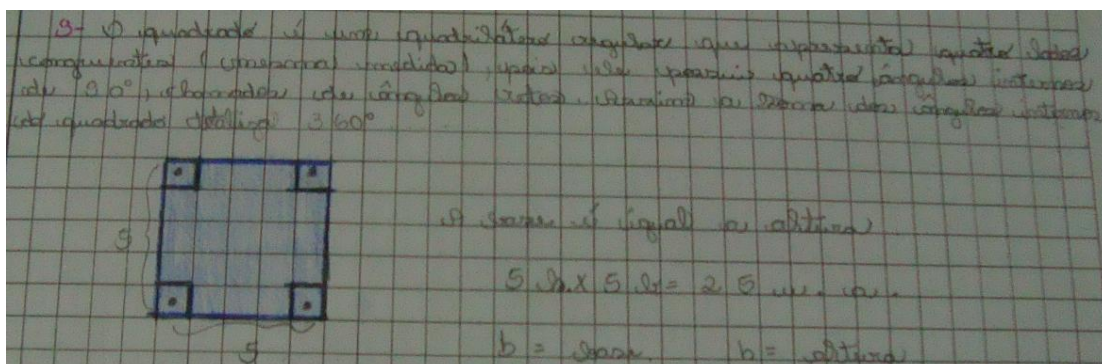 9- O quadrado é um quadrilátero regular que apresenta quatro lados
congruentes (mesma medida), pois ele possui quatro ângulos internos
de 90°, chamados de ângulos retos. Assim a soma dos ângulos internos
do quadrado 360°
A base é igual a altura
5
5 b. x 5 h = 25 u. a.
5
b = base h = altura